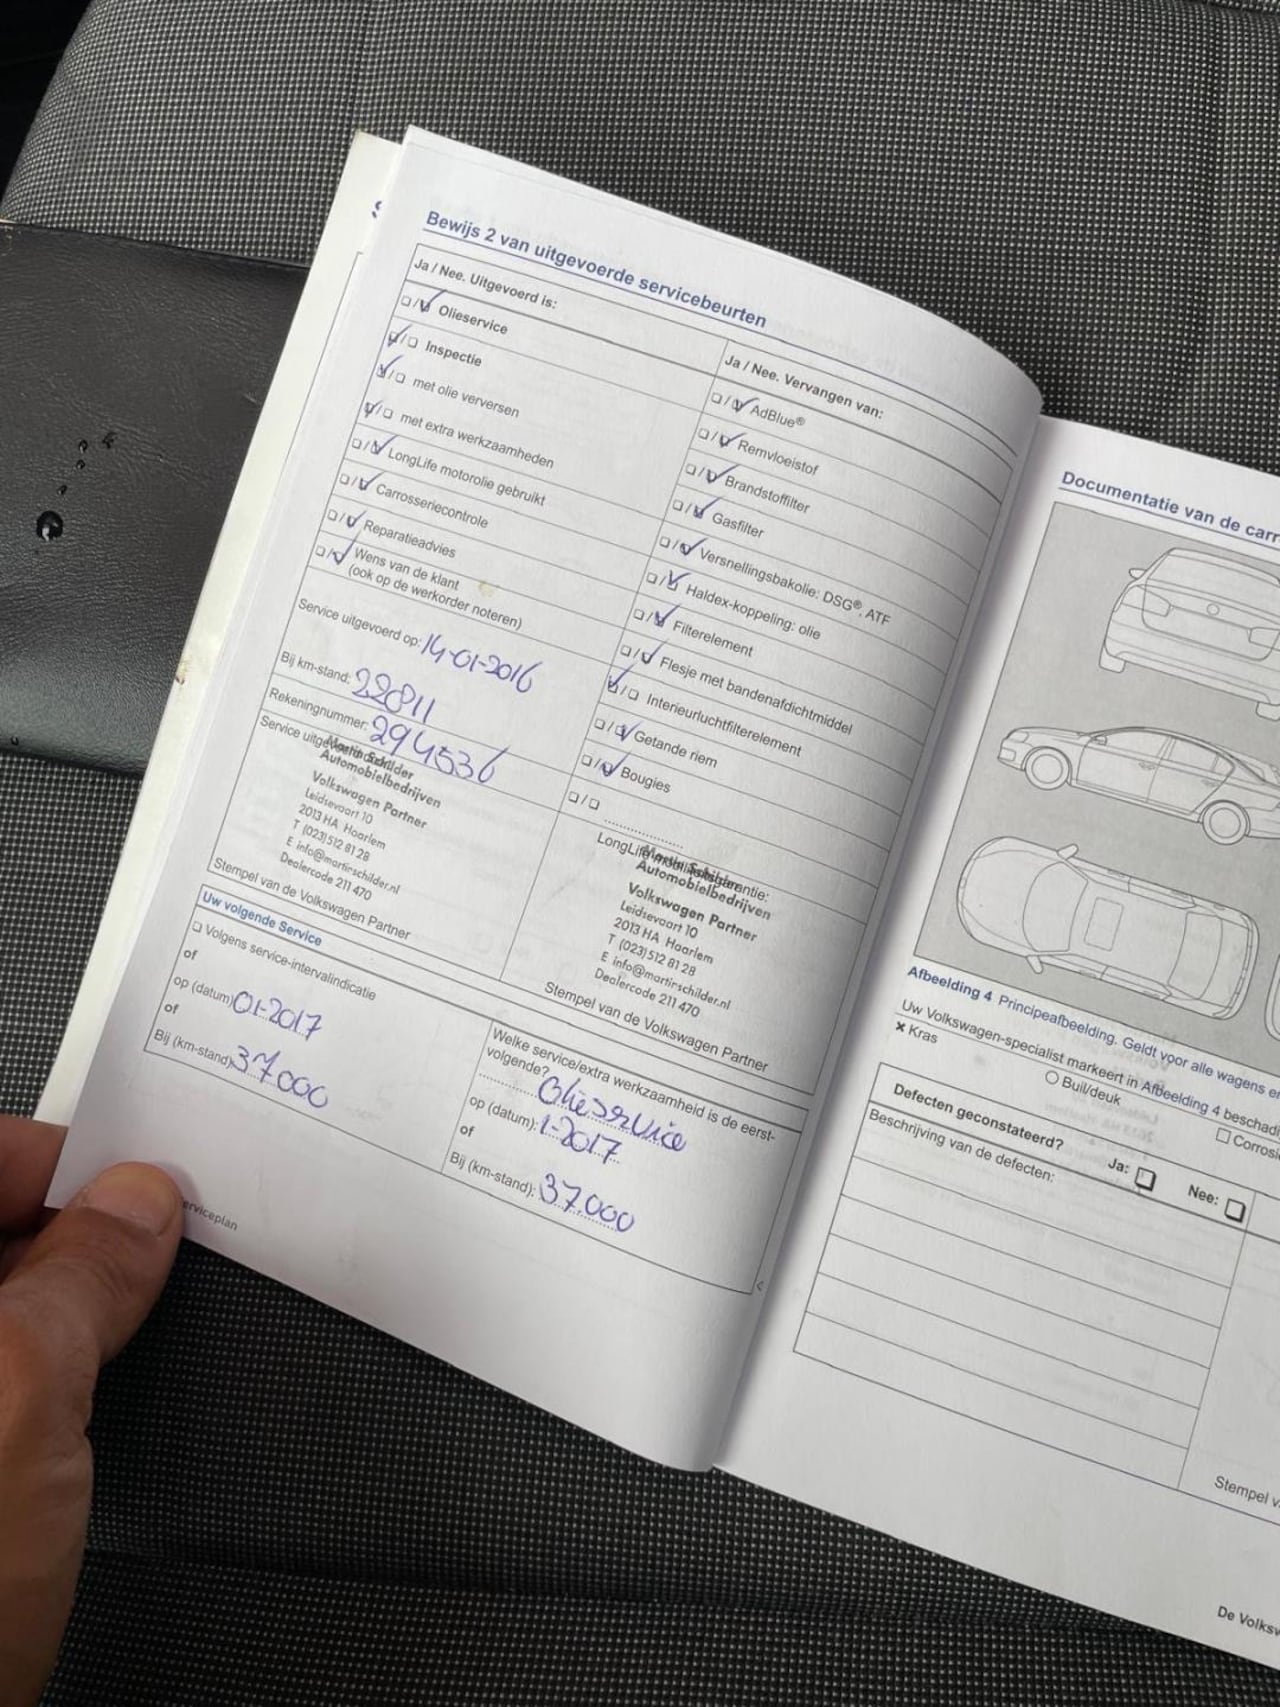 Bewijs 2 van uitgevoerde servicebeurten
Ja / Nee. Uitgevoerd is:
❑/❑ Olieservice
❑/❑ Inspectie
❑/❑ met olie verversen
❑/❑ met extra werkzaamheden
❑/❑ LongLife motorolie gebruikt
❑/❑ Carrosseriecontrole
❑/❑ Reparatieadvies
❑/❑ Wens van de klant
(ook op de werkorder noteren)
Service uitgevoerd op: 14-01-2016
Bij km-stand: 22811
Rekeningnummer: 294536
Service uitgevoerd door:
Martin Schilder
Automobielbedrijven
Volkswagen Partner
Leidsevaart 10
2013 HA Haarlem
T (023) 512 81 28
E info@martinschilder.nl
Dealercode 211 470
Stempel van de Volkswagen Partner
Ja / Nee. Vervangen van:
❑/❑ AdBlue®
❑/❑ Remvloeistof
❑/❑ Brandstoffilter
❑/❑ Gasfilter
❑/❑ Versnellingsbakolie: DSG®, ATF
❑/❑ Haldex-koppeling: olie
❑/❑ Filterelement
❑/❑ Flesje met bandenafdichtmiddel
❑/❑ Interieurluchtfilterelement
❑/❑ Getande riem
❑/❑ Bougies
❑/❑ ....................
LongLife mobiliteitsgarantie:
Martin Schilder
Automobielbedrijven
Volkswagen Partner
Leidsevaart 10
2013 HA Haarlem
T (023) 512 81 28
E info@martinschilder.nl
Dealercode 211 470
Stempel van de Volkswagen Partner
Uw volgende Service
❑ Volgens service-intervalindicatie
of
op (datum) 01-2017
of
Bij (km-stand): 37000
Welke service/extra werkzaamheid is de eerst-
volgende?
Olieservice
op (datum): 1-2017
of
Bij (km-stand): 37.000
erviceplan
Documentatie van de carr
Afbeelding 4 Principeafbeelding. Geldt voor alle wagens e
Uw Volkswagen-specialist markeert in Afbeelding 4 beschadi
× Kras
○ Buil/deuk
□ Corrosi
Defecten geconstateerd?
Ja: ❑
Nee: ❑
Beschrijving van de defecten:
Stempel v
De Volksw